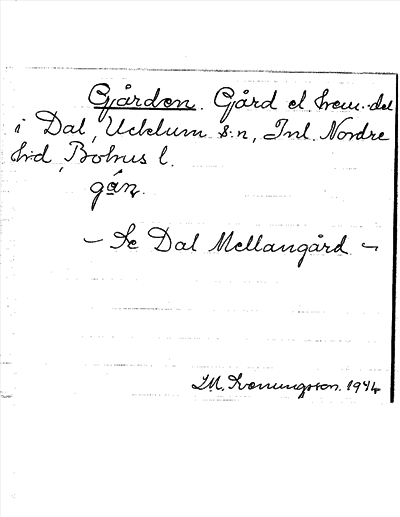 Gården. Gård el. hem.del
i Dal, Ucklum s:n, Inl. Nordre
hd, Bohus l.
gán.
— Se Dal Mellangård. —
1944